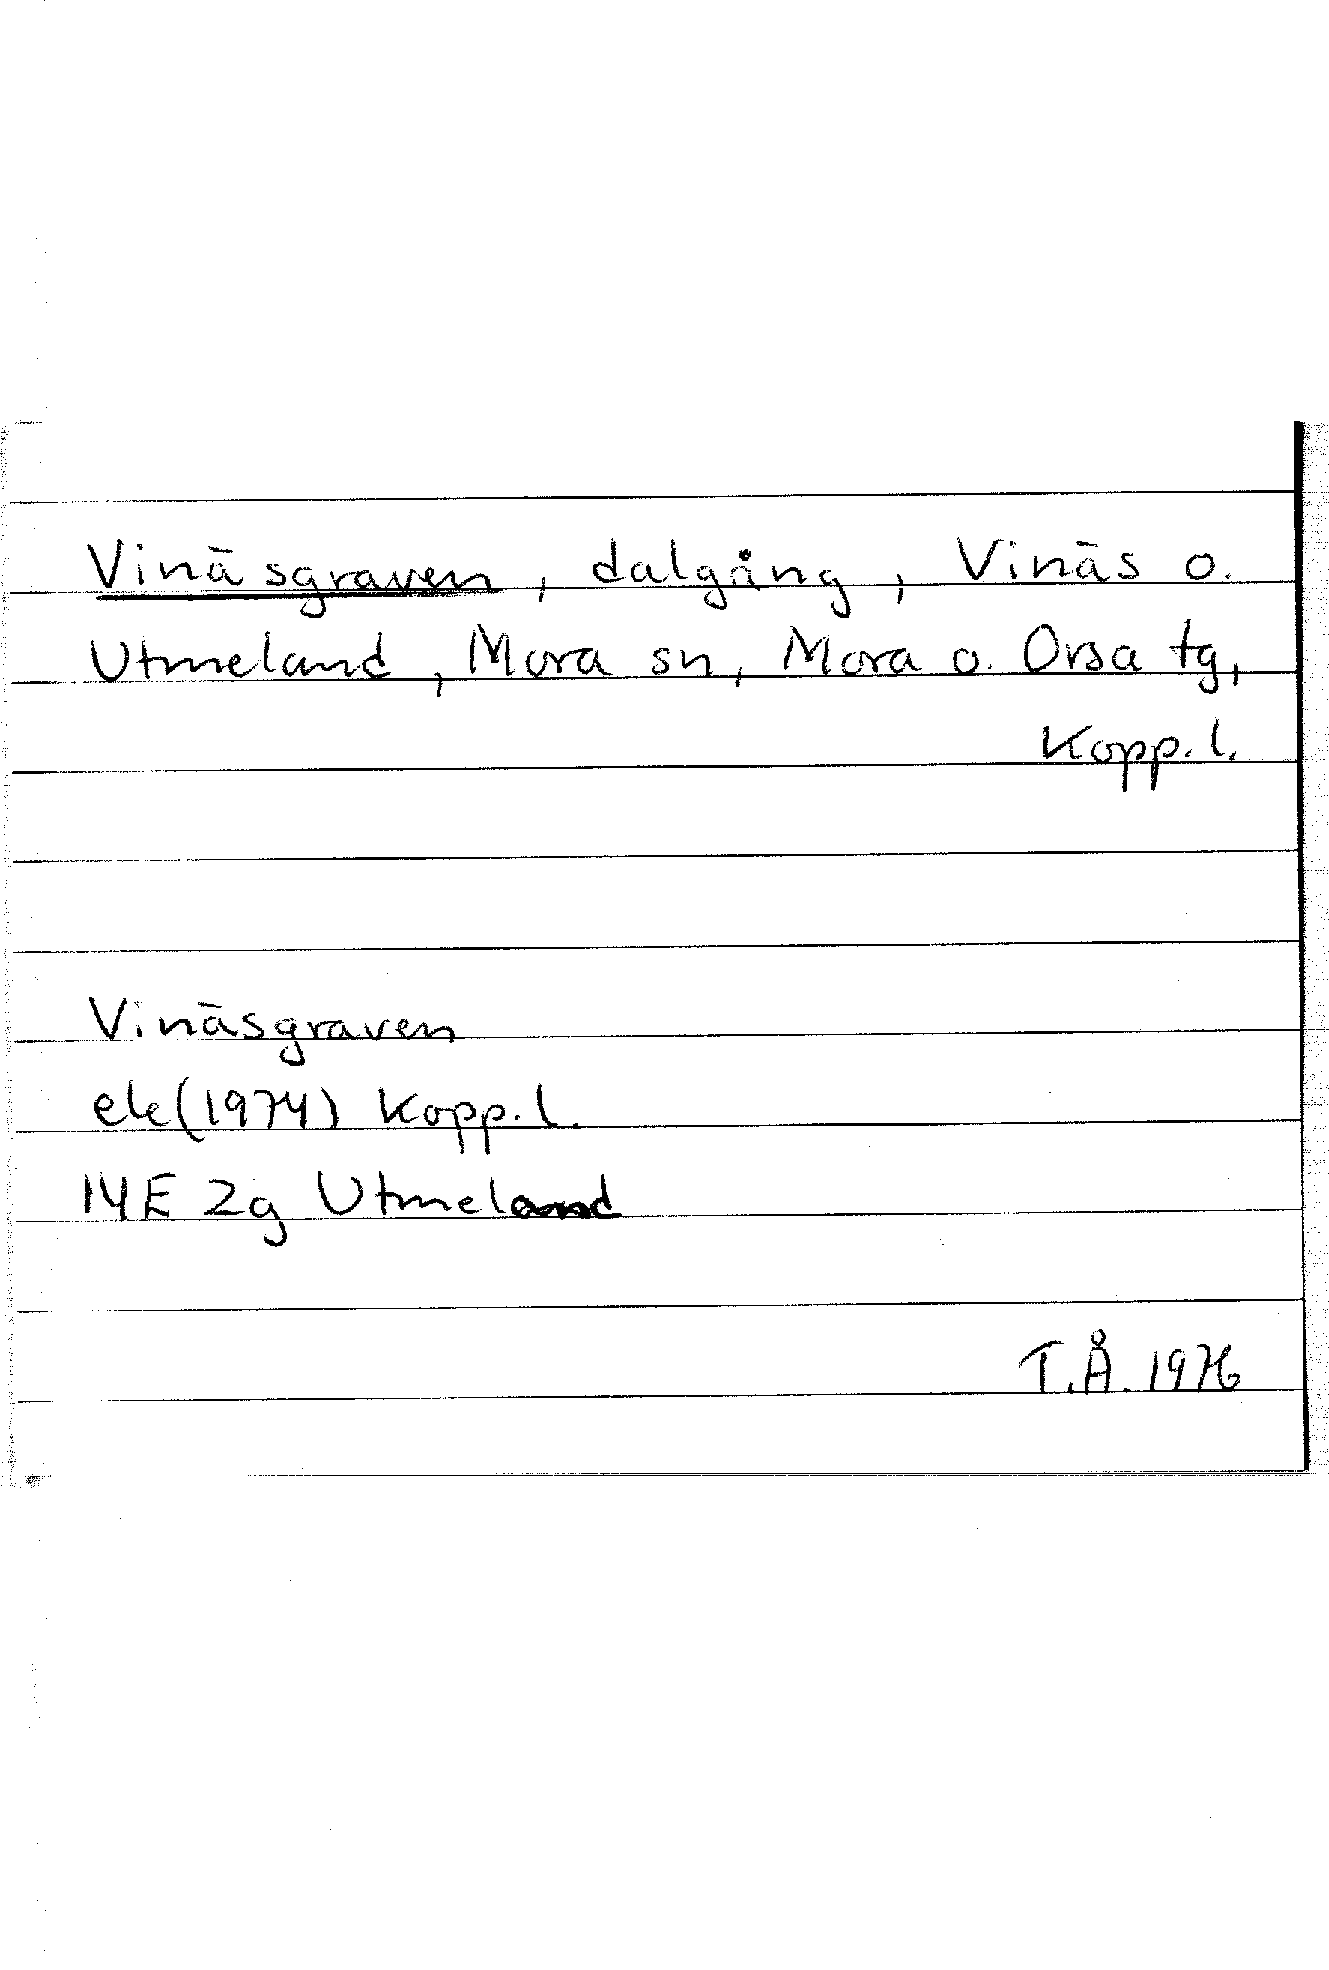 Vinäsgraven, dalgång, Vinäs o.
Utmeland, Mora sn, Mora o. Orsa tg,
Kopp. l.
Vinäsgraven
ek (1974) Kopp. l.
14E 2g Utmeland
T.Å. 1976